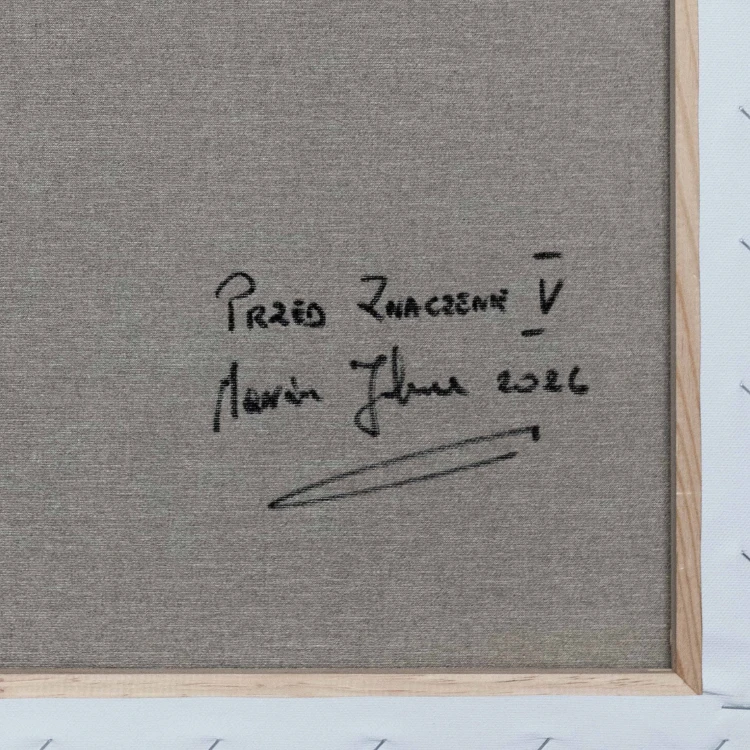 PRZED ZNACZENIE V
Marcin 2026